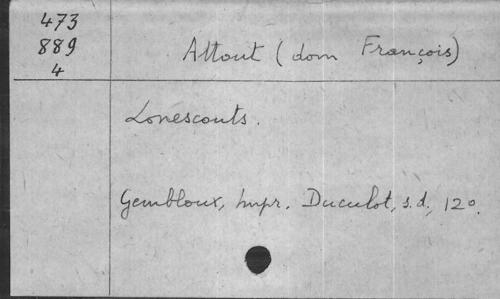 473
889
4
Attout (dom François)
Lonescouts.
Gembloux, Impr. Duculot, s.d., 12°.